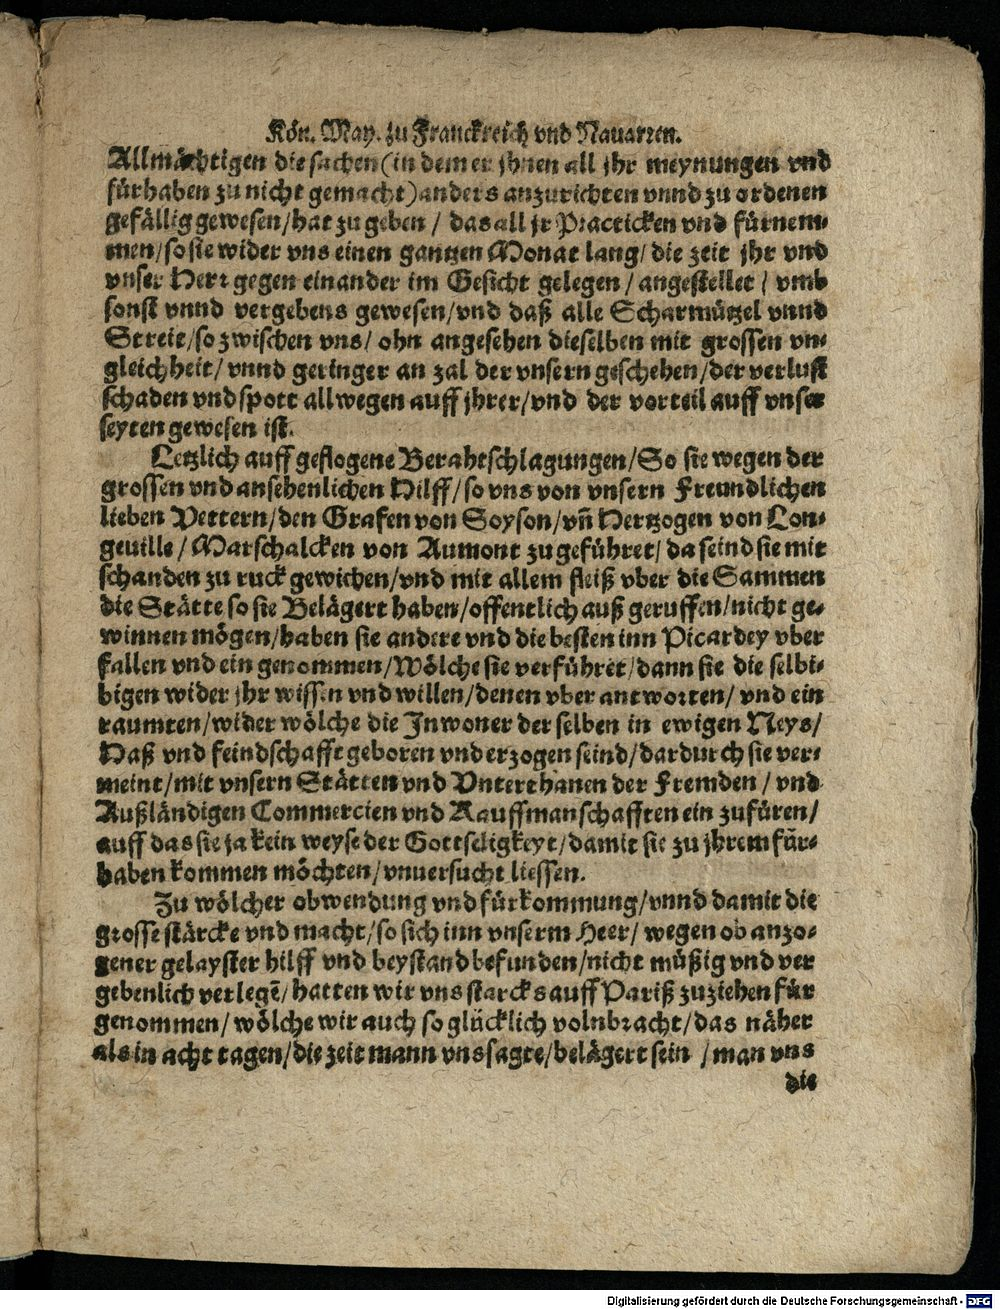 Kön. May. zu Franckreich vnd Nauarren.
Allmächtigen die sachen (in dem er jhnen all jhr meynungen vnd
fürhaben zu nicht gemacht) anders anzurichten vnnd zu ordenen
gefällig gewesen / hat zu geben / das all jr Practicken vnd fürnem-
men / so sie wider vns einen gantzen Monat lang / die zeit jhr vnd
vnser Herr gegen einander im Gesicht gelegen / angestellet / vmb
sonst vnnd vergebens gewesen / vnd daß alle Scharmützel vnnd
Streit / so zwischen vns / ohn angesehen dieselben mit grossen vn-
gleichheit / vnnd geringer an zal der vnsern geschehen / der verlust
schaden vnd spott allwegen auff jhrer / vnd der vorteil auff vnser
seyten gewesen ist.
Letzlich auff geflogene Berahtschlagungen / So sie wegen der
grossen vnd ansehenlichen Hilff / so vns von vnsern Freundlichen
lieben Vettern / den Grafen von Soyson / vñ Hertzogen von Lon-
geuille / Marschalcken von Aumont zugeführet / da seind sie mit
schanden zu ruck gewichen / vnd mit allem fleiß vber die Sammen
die Stätte so sie Belägert haben / offentlich auß geruffen / nicht ge-
winnen mögen / haben sie andere vnd die besten inn Picardey vber
fallen vnd ein genommen / Wölche sie verführet / dann sie die selbi-
bigen wider jhr wissen vnd willen / denen vber antworten / vnd ein
raumten / wider wölche die Inwoner der selben in ewigen Neys /
Haß vnd feindschafft geboren vnd erzogen seind / dardurch sie ver-
meint / mit vnsern Stätten vnd Vnterthanen der Fremden / vnd
Außländigen Commercien vnd Kauffmanschafften ein zufüren /
auff das sie ja kein weyse der Gottseligkeyt / damit sie zu jhrem für-
haben kommen möchten / vnuersucht liessen.
Zu wölcher obwendung vnd fürkommung / vnnd damit die
grosse stärcke vnd macht / so sich inn vnserm Heer / wegen ob anzo-
gener gelayster hilff vnd beystand befunden / nicht müßig vnd ver
gebenlich verlegẽ / hatten wir vns starcks auff Pariß zuziehen für
genommen / wölche wir auch so glücklich volnbracht / das näher
als in acht tagen / die zeit mann vns sagte / belägert sein / man vns
die
Digitalisierung gefördert durch die Deutsche Forschungsgemeinschaft - DFG